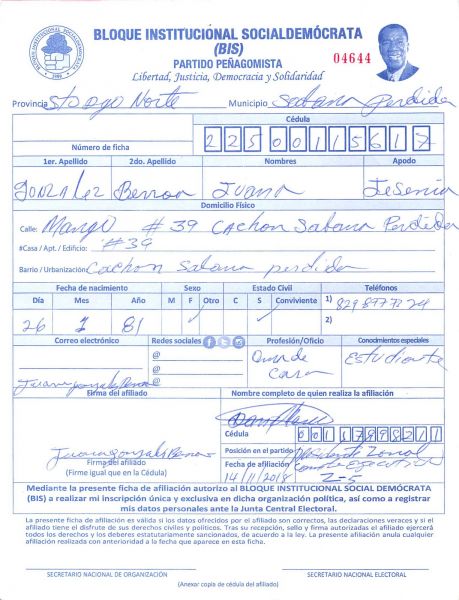 BLOQUE INSTITUCIONAL SOCIALDEMÓCRATA
(BIS)
PARTIDO PEÑAGOMISTA
Libertad, Justicia, Democracia y Solidaridad
04644
Provincia Stodgo Norte Municipio Sabana perdida
Cédula
Número de ficha 22500115617
1er. Apellido 2do. Apellido Nombres Apodo
Gonzalez Berroa Juana Jesenia
Domicilio Físico
Calle: Mango # 39 Cachon Sabana Perdida
#Casa / Apt. / Edificio: #39
Barrio / Urbanización: Cachon Sabana perdida
Fecha de nacimiento Sexo Estado Civil Teléfonos
Día Mes Año M F Otro C S Conviviente 1) 829 877
26 81 ✓ ✓ 2)
Correo electrónico Redes sociales Profesión/Oficio Conocimientos especiales
@ Ama de Estudiante
@ Casa
@
Firma del afiliado Nombre completo de quien realiza la afiliación
Cédula
001
Posición en el partido Presidente Zonal
Firma del afiliado
(Firme igual que en la Cédula)
Fecha de afiliación Comite Ejecutivo
14/11/2018 Z-5
Mediante la presente ficha de afiliación autorizo al BLOQUE INSTITUCIONAL SOCIAL DEMÓCRATA
(BIS) a realizar mi inscripción única y exclusiva en dicha organización política, así como a registrar
mis datos personales ante la Junta Central Electoral.
La presente ficha de afiliación es válida si los datos ofrecidos por el afiliado son correctos, las declaraciones veraces y si el
afiliado tiene el disfrute de sus derechos civiles y políticos. Tras su recepción, sello y firma autorizadas el afiliado ejercerá
todos los derechos y los deberes estatutariamente sancionados, de acuerdo a la ley. La presente afiliación anula cualquier
afiliación realizada con anterioridad a la fecha que aparece en esta ficha.
SECRETARIO NACIONAL DE ORGANIZACIÓN SECRETARIO NACIONAL ELECTORAL
(Anexar copia de cédula del afiliado)